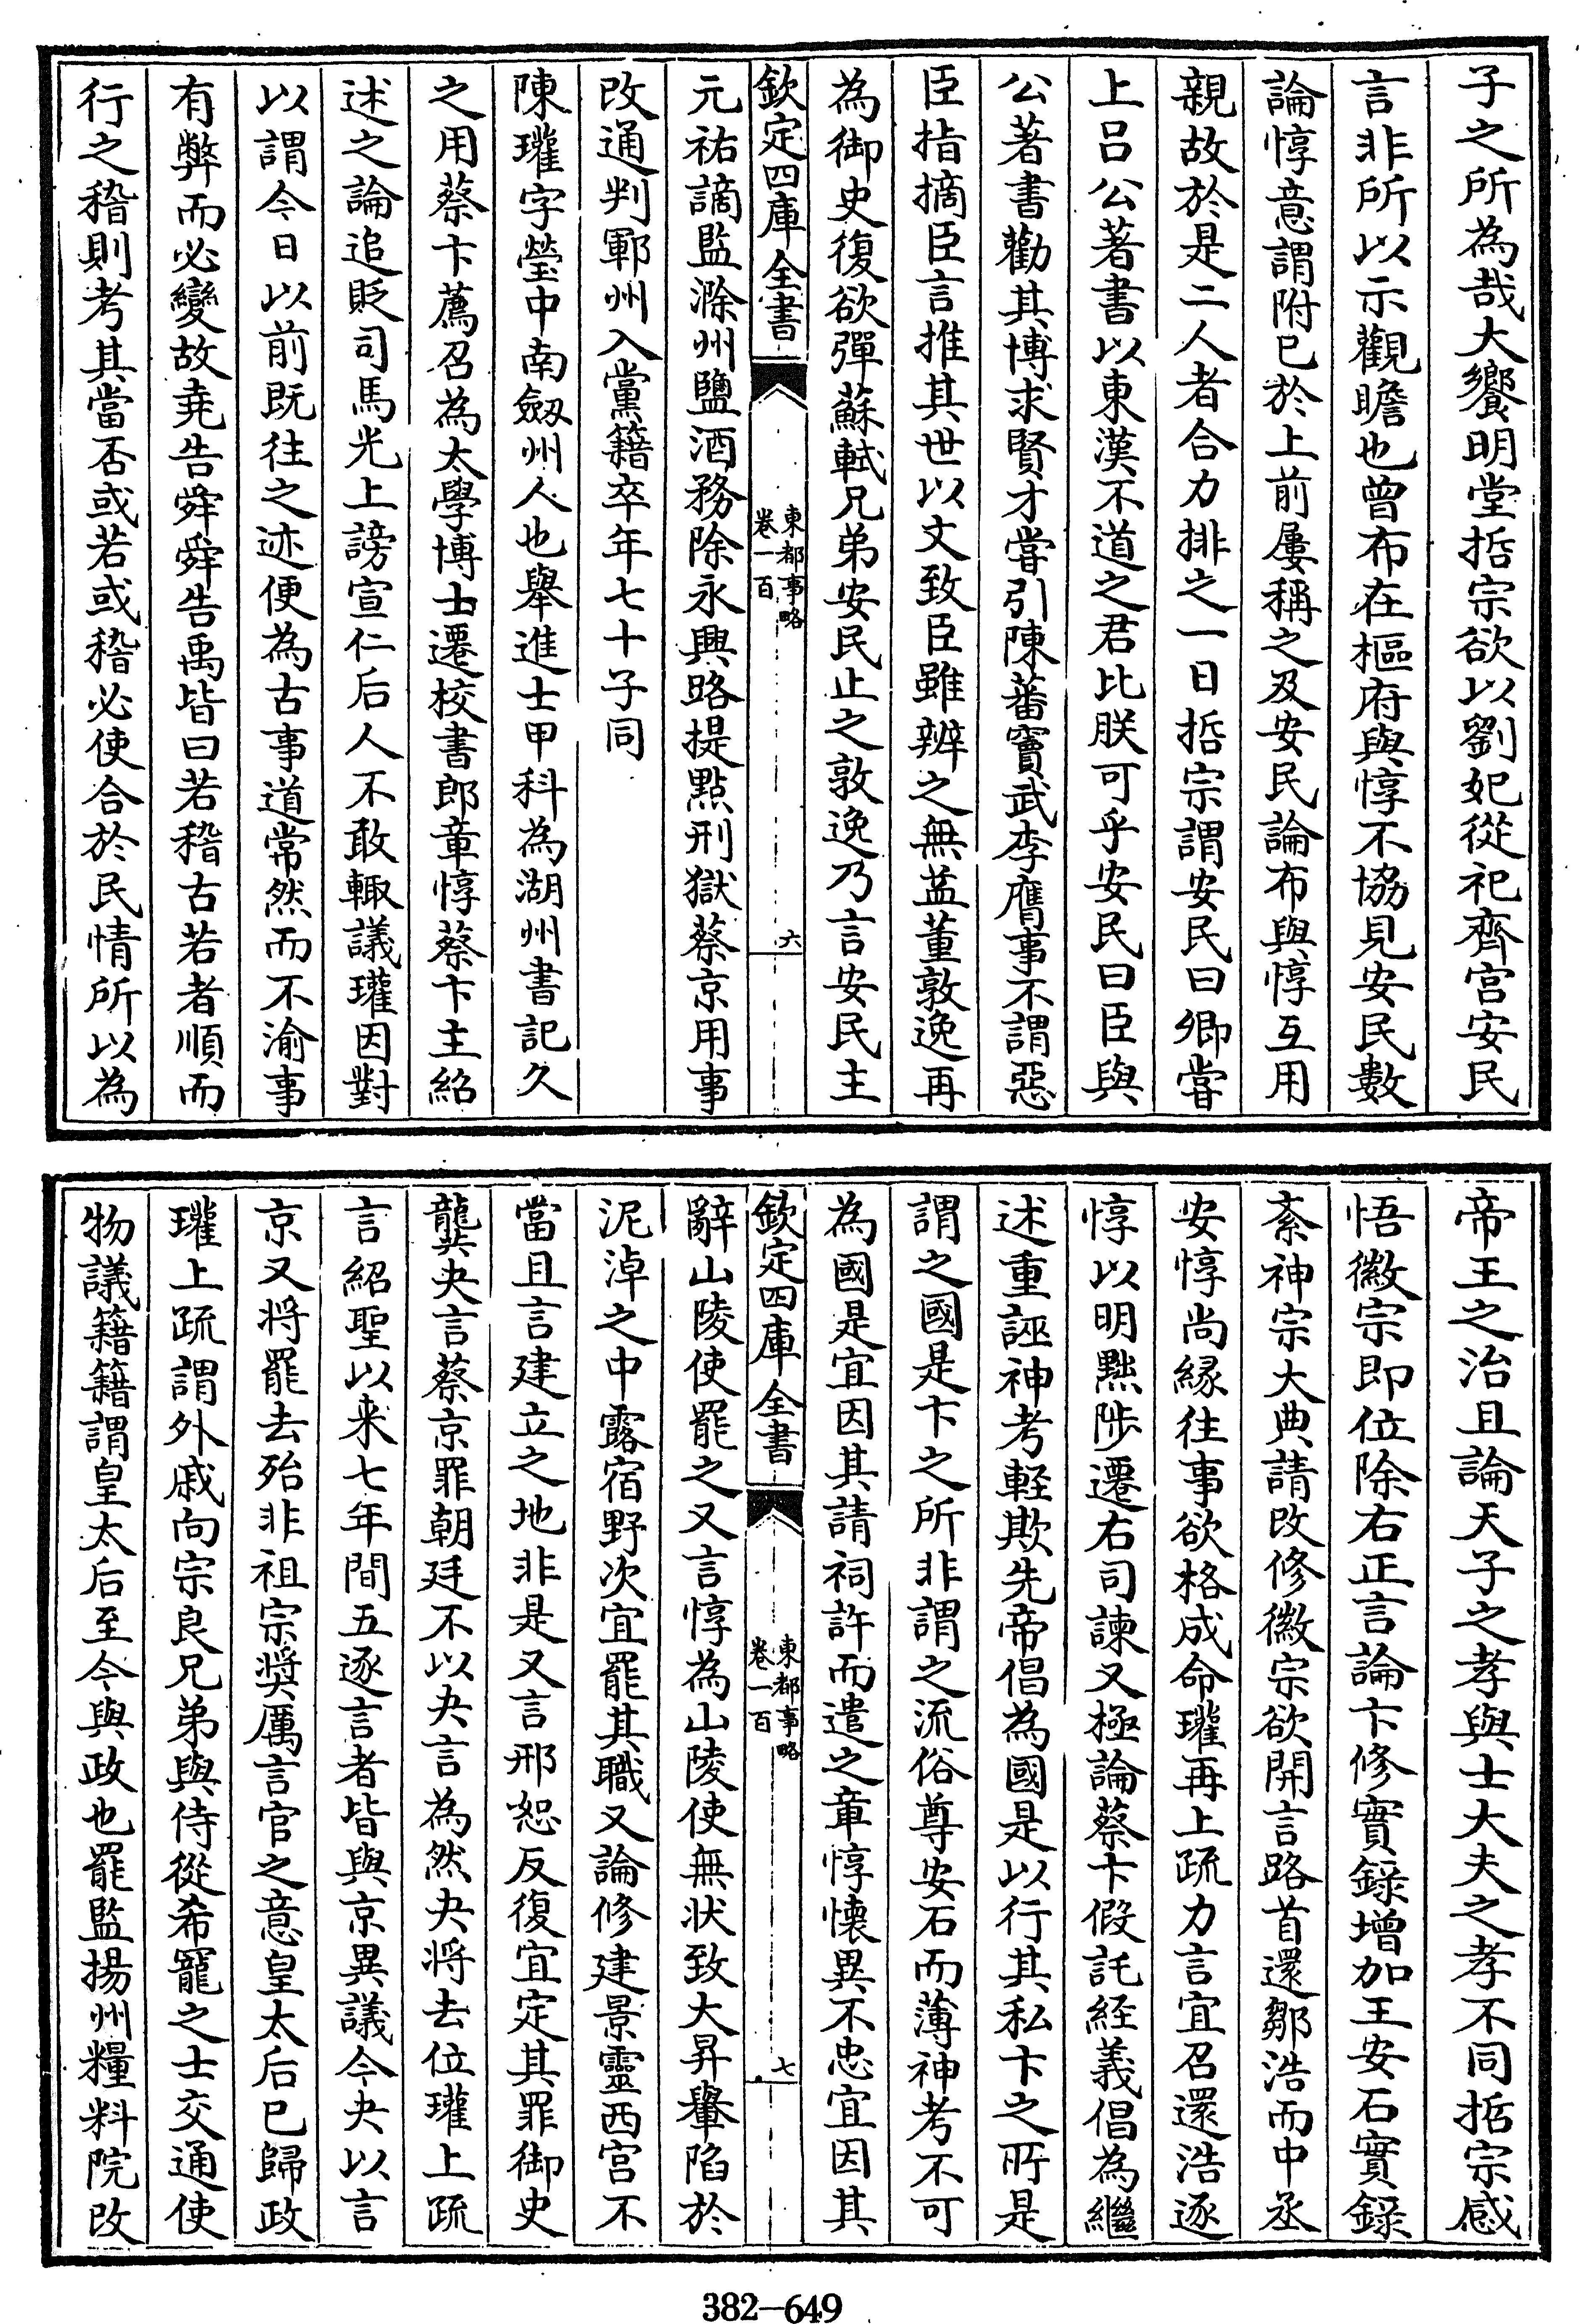 子之所為哉大饗明堂哲宗欲以劉妃從祀齊宫安民
言非所以示觀瞻也曾布在樞府與惇不協見安民數
論惇意謂附已於上前屢稱之及安民論布與惇互用
親故於是二人者合力排之一日哲宗謂安民曰卿嘗
上吕公著書以東漢不道之君比朕可乎安民曰臣與
公著書勸其博求賢才嘗引陳蕃竇武李膺事不謂惡
臣指摘臣言推其世以文致臣雖辨之無益董敦逸再
為御史復欲彈蘇軾兄弟安民止之敦逸乃言安民主
欽定四庫全書
東都事略
卷一百
六
元祐謫監滁州鹽酒務除永興路提㸃刑獄蔡京用事
改通判鄆州入黨籍卒年七十子同
陳瓘字瑩中南劔州人也舉進士甲科為湖州書記久
之用蔡卞薦召為太學博士遷校書郎章惇蔡卞主紹
述之論追貶司馬光上謗宣仁后人不敢輙議瓘因對
以謂今日以前既往之迹便為古事道常然而不渝事
有弊而必變故堯告舜舜告禹皆曰若稽古若者順而
行之稽則考其當否或若或稽必使合於民情所以為
帝王之治且論天子之孝與士大夫之孝不同哲宗感
悟徽宗即位除右正言論卞修實錄增加王安石實錄
紊神宗大典請改修徽宗欲開言路首還鄒浩而中丞
安惇尚縁往事欲格成命瓘再上疏力言宜召還浩逐
惇以明黜陟遷右司諫又極論蔡卞假託經義倡為繼
述重誣神考輕欺先帝倡為國是以行其私卞之所是
謂之國是卞之所非謂之流俗尊安石而薄神考不可
為國是宜因其請祠許而遣之章惇懐異不忠宜因其
欽定四庫全書
東都事略
卷一百
七
辭山陵使罷之又言惇為山陵使無状致大昇轝陷於
泥淖之中露宿野次宜罷其職又論修建景靈西宫不
當且言建立之地非是又言邢恕反復宜定其罪御史
龔夬言蔡京罪朝廷不以夬言為然夬将去位瓘上疏
言紹聖以来七年間五逐言者皆與京異議今夬以言
京又将罷去殆非祖宗奬厲言官之意皇太后已歸政
瓘上疏謂外戚向宗良兄弟與侍從希寵之士交通使
物議籍籍謂皇太后至今與政也罷監揚州糧料院改
382—649